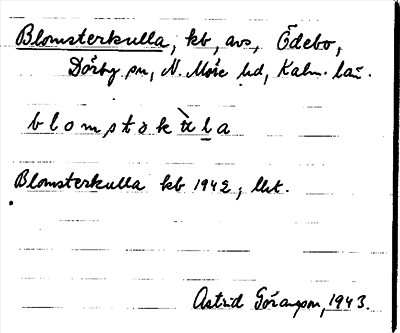 Blomsterkulla, kb, avs, Ödebo,
Dörby sn, N. Möre hd, Kalm. län.
blomstəkùla
Blomsterkulla kb 1942, lht.
Astrid Göranson, 1943.